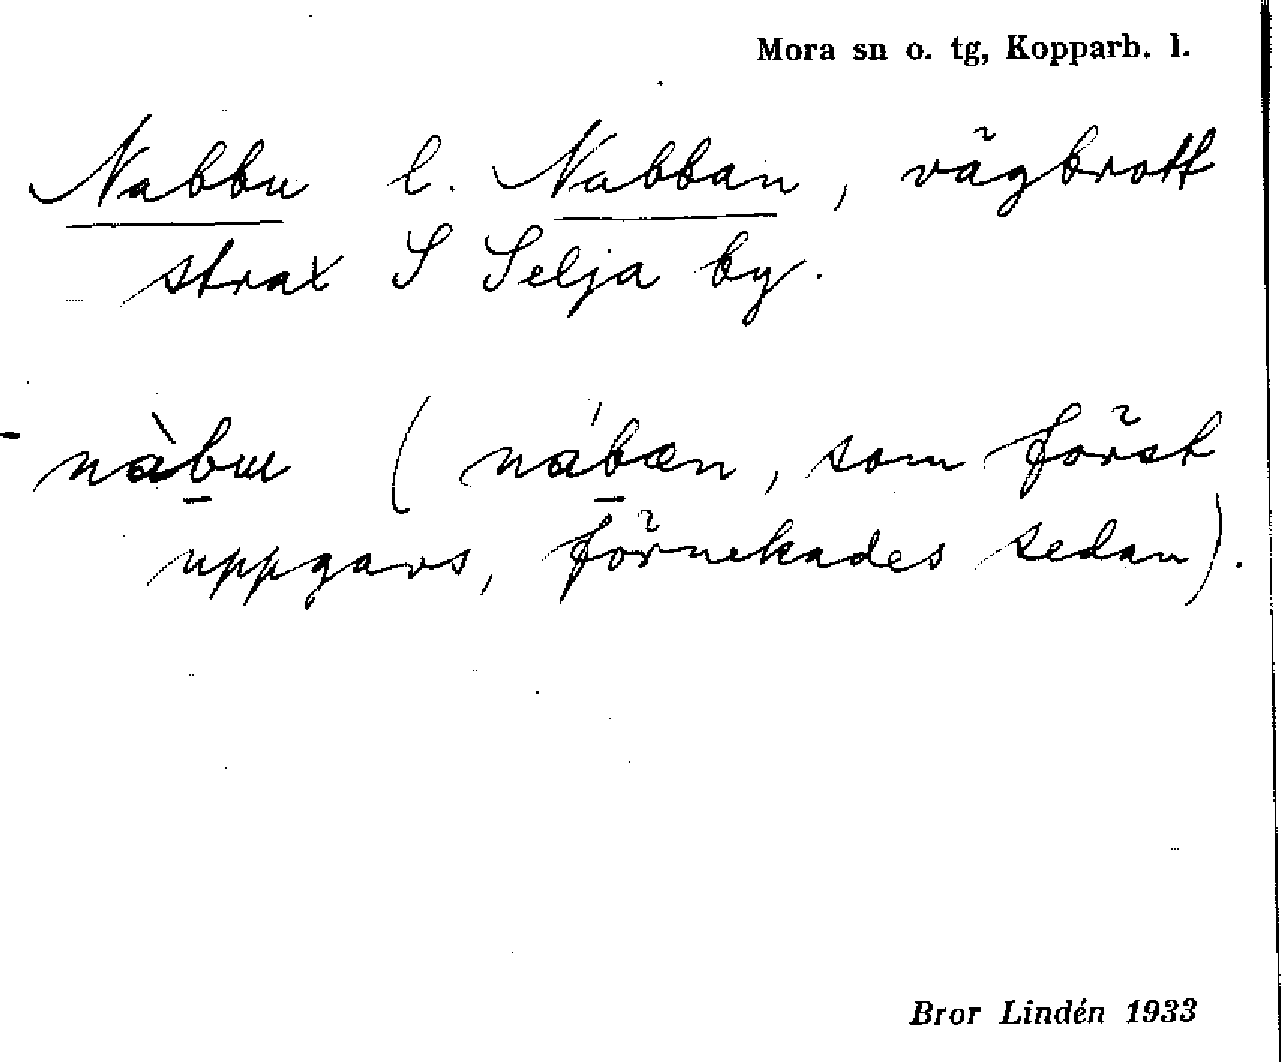 Mora sn o. tg, Kopparb. l.
Nabbu l. Nabban, vägbrott
strax S Selja by.
nàb̲ɯ (náb̲æn, som först
uppgavs, förnekades sedan).
Bror Lindén 1933